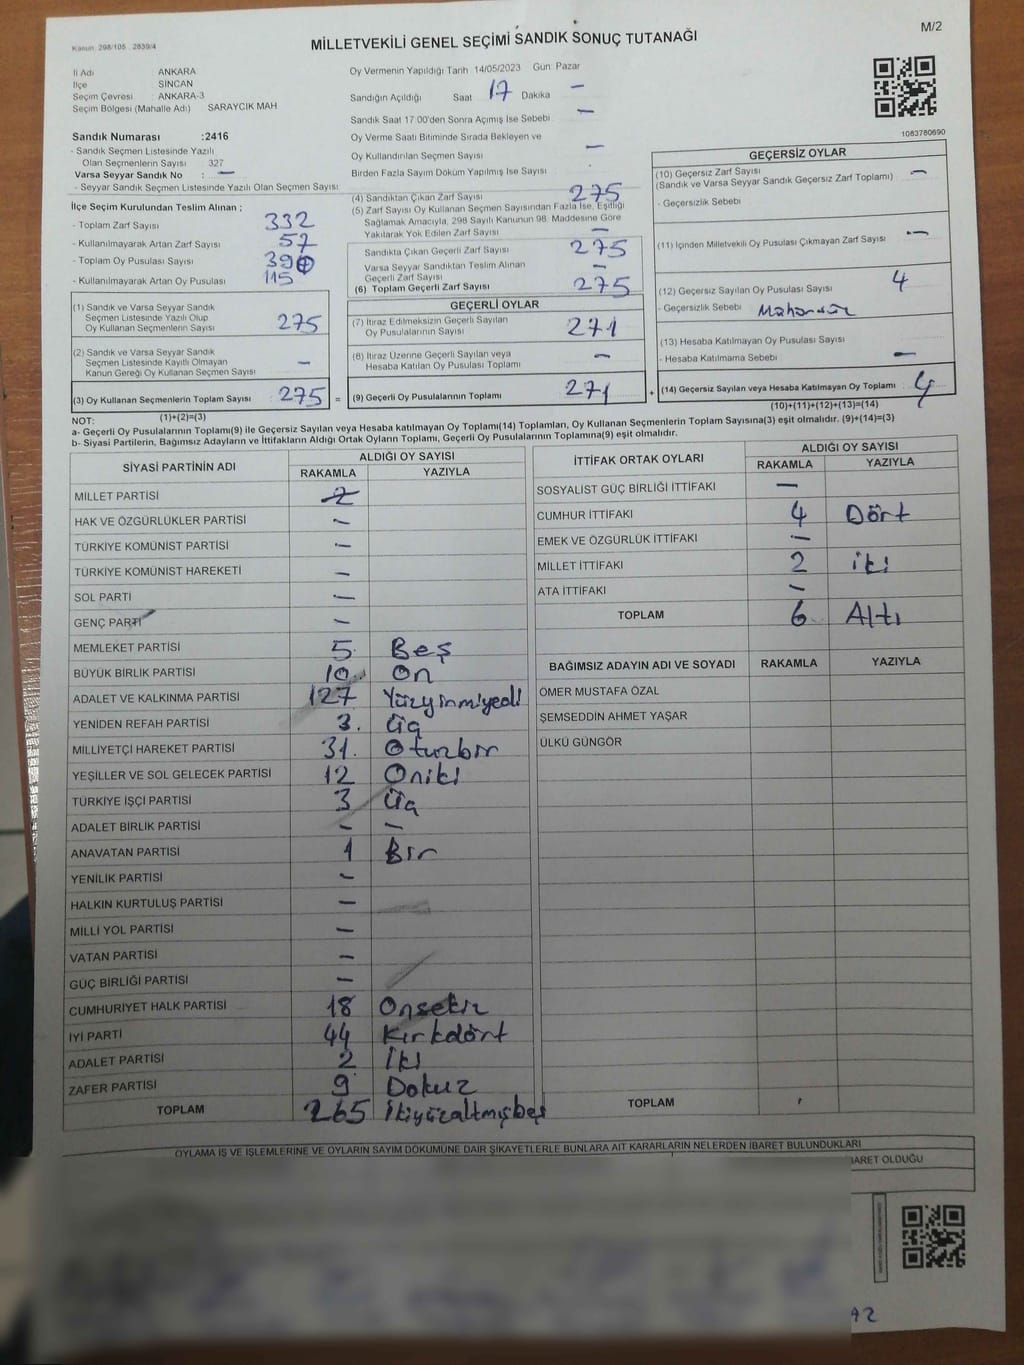 Kanun 298/105 2839/4
M/2
MİLLETVEKİLİ GENEL SEÇİMİ SANDIK SONUÇ TUTANAĞI
İl Adı ANKARA
İlçe SİNCAN
Seçim Çevresi ANKARA-3
Seçim Bölgesi (Mahalle Adı) SARAYCIK MAH
Sandık Numarası :2416
- Sandık Seçmen Listesinde Yazılı
Olan Seçmenlerin Sayısı : 327
Varsa Seyyar Sandık No : —
- Seyyar Sandık Seçmen Listesinde Yazılı Olan Seçmen Sayısı
İlçe Seçim Kurulundan Teslim Alınan ;
- Toplam Zarf Sayısı 332
- Kullanılmayarak Artan Zarf Sayısı 57
- Toplam Oy Pusulası Sayısı
- Kullanılmayarak Artan Oy Pusulası 115
(1) Sandık ve Varsa Seyyar Sandık
Seçmen Listesinde Yazılı Olup
Oy Kullanan Seçmenlerin Sayısı 275
(2) Sandık ve Varsa Seyyar Sandık
Seçmen Listesinde Kayıtlı Olmayan
Kanun Gereği Oy Kullanan Seçmen Sayısı —
(3) Oy Kullanan Seçmenlerin Toplam Sayısı 275 =
Oy Vermenin Yapıldığı Tarih 14/05/2023 Gün Pazar
Sandığın Açıldığı Saat 17 Dakika —
Sandık Saat 17 00'den Sonra Açımış İse Sebebi —
Oy Verme Saati Bitiminde Sırada Bekleyen ve
Oy Kullandırılan Seçmen Sayısı —
Birden Fazla Sayım Döküm Yapılmış İse Sayısı
(4) Sandıktan Çıkan Zarf Sayısı 275
(5) Zarf Sayısı Oy Kullanan Seçmen Sayısından Fazla İse, Eşitliği
Sağlamak Amacıyla, 298 Sayılı Kanunun 98. Maddesine Göre
Yakılarak Yok Edilen Zarf Sayısı —
Sandıkta Çıkan Geçerli Zarf Sayısı 275
Varsa Seyyar Sandıktan Teslim Alınan
Geçerli Zarf Sayısı —
(6) Toplam Geçerli Zarf Sayısı 275
GEÇERLİ OYLAR
(7) İtiraz Edilmeksizin Geçerli Sayılan
Oy Pusulalarının Sayısı 271
(8) İtiraz Üzerine Geçerli Sayılan veya
Hesaba Katılan Oy Pusulası Toplamı —
(9) Geçerli Oy Pusulalarının Toplamı 271 +
1083780690
GEÇERSİZ OYLAR
(10) Geçersiz Zarf Sayısı
(Sandık ve Varsa Seyyar Sandık Geçersiz Zarf Toplamı) —
- Geçersizlik Sebebi
(11) İçinden Milletvekili Oy Pusulası Çıkmayan Zarf Sayısı —
(12) Geçersiz Sayılan Oy Pusulası Sayısı 4
- Geçersizlik Sebebi
(13) Hesaba Katılmayan Oy Pusulası Sayısı
- Hesaba Katılmama Sebebi —
(14) Geçersiz Sayılan veya Hesaba Katılmayan Oy Toplamı 4
NOT: (1)+(2)=(3) (10)+(11)+(12)+(13)=(14)
a- Geçerli Oy Pusulalarının Toplamı(9) ile Geçersiz Sayılan veya Hesaba katılmayan Oy Toplamı(14) Toplamları, Oy Kullanan Seçmenlerin Toplam Sayısına(3) eşit olmalıdır. (9)+(14)=(3)
b- Siyasi Partilerin, Bağımsız Adayların ve İttifakların Aldığı Ortak Oyların Toplamı, Geçerli Oy Pusulalarının Toplamına(9) eşit olmalıdır.
SİYASİ PARTİNİN ADI ALDIĞI OY SAYISI
RAKAMLA YAZIYLA
MİLLET PARTİSİ
HAK VE ÖZGÜRLÜKLER PARTİSİ —
TÜRKİYE KOMÜNİST PARTİSİ —
TÜRKİYE KOMÜNİST HAREKETİ —
SOL PARTİ —
GENÇ PARTİ —
MEMLEKET PARTİSİ 5 Beş
BÜYÜK BİRLİK PARTİSİ 10 On
ADALET VE KALKINMA PARTİSİ 127 Yüzyirmiyedi
YENİDEN REFAH PARTİSİ 3. Üç
MİLLİYETÇİ HAREKET PARTİSİ 31. Otuzbir
YEŞİLLER VE SOL GELECEK PARTİSİ 12 Oniki
TÜRKİYE İŞÇİ PARTİSİ 3 Üç
ADALET BİRLİK PARTİSİ — —
ANAVATAN PARTİSİ 1 Bir
YENİLİK PARTİSİ —
HALKIN KURTULUŞ PARTİSİ —
MİLLİ YOL PARTİSİ —
VATAN PARTİSİ —
GÜÇ BİRLİĞİ PARTİSİ —
CUMHURİYET HALK PARTİSİ 18 Onsekiz
İYİ PARTİ 44 Kırkdört
ADALET PARTİSİ 2 İki
ZAFER PARTİSİ 9 Dokuz
TOPLAM 265 İkiyüzaltmışbeş
İTTİFAK ORTAK OYLARI ALDIĞI OY SAYISI
RAKAMLA YAZIYLA
SOSYALİST GÜÇ BİRLİĞİ İTTİFAKI —
CUMHUR İTTİFAKI 4 Dört
EMEK VE ÖZGÜRLÜK İTTİFAKI —
MİLLET İTTİFAKI 2 iki
ATA İTTİFAKI —
TOPLAM 6 Altı
BAĞIMSIZ ADAYIN ADI VE SOYADI RAKAMLA YAZIYLA
ÖMER MUSTAFA ÖZAL
ŞEMSEDDİN AHMET YAŞAR
ÜLKÜ GÜNGÖR
TOPLAM
OYLAMA İŞ VE İŞLEMLERİNE VE OYLARIN SAYIM DÖKÜMÜNE DAİR ŞİKAYETLERLE BUNLARA AİT KARARLARIN NELERDEN İBARET BULUNDUKLARI
BARET OLDUĞU